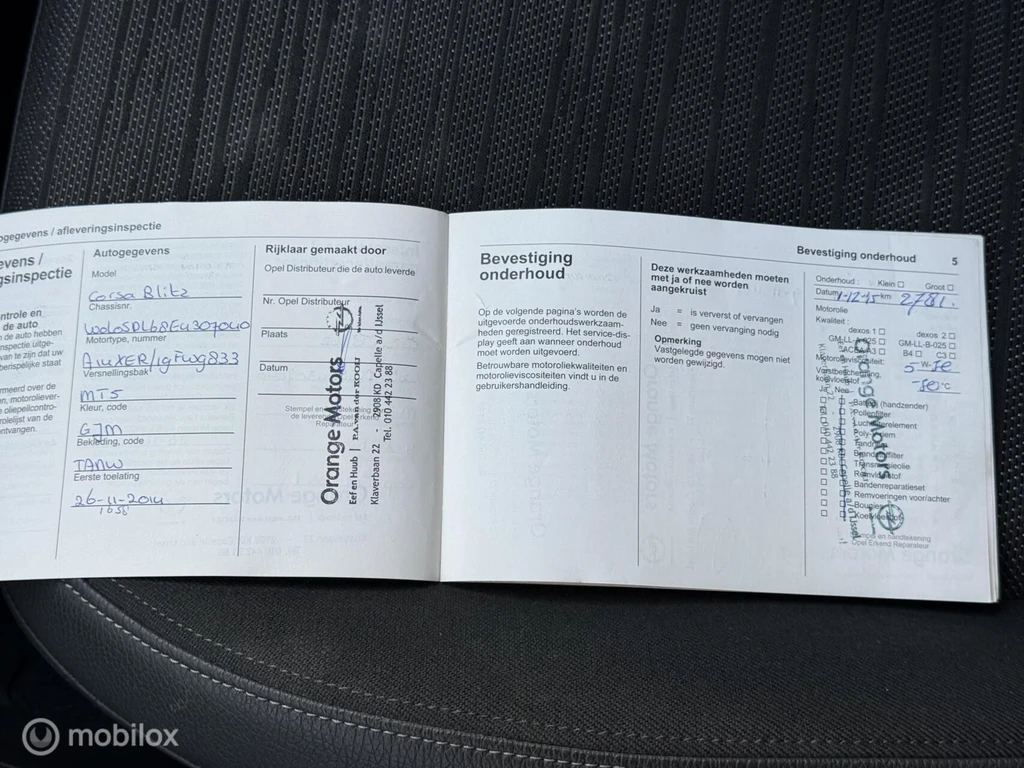 ogegevens / afleveringsinspectie
evens /
gsinspectie
ntrole en
de auto
n de auto hebben
nspectie uitge-
van te zijn dat uw
berispelijke staat
rmeerd over de
en, motorolever-
e oliepeilcontro-
rolelijst van de
ontvangen.
Autogegevens
Model
Corsa Blitz
Chassisnr.
Motortype, nummer
Versnellingsbak
MT5
Kleur, code
GJM
Bekleding, code
TANW
Eerste toelating
26-11-2014
1658
Rijklaar gemaakt door
Opel Distributeur die de auto leverde
Nr. Opel Distributeur
Plaats
Datum
Stempel en
de leverende Opel Erkend
Reparateur
Orange Motors
Eef en Huub | P.A. van der KOOIJ
Klaverbaan 22 - 2908 KD Capelle a/d IJssel
Tel. 010 442 23 88
Bevestiging
onderhoud
Op de volgende pagina's worden de
uitgevoerde onderhoudswerkzaam-
heden geregistreerd. Het service-dis-
play geeft aan wanneer onderhoud
moet worden uitgevoerd.
Betrouwbare motoroliekwaliteiten en
motorolieviscositeiten vindt u in de
gebruikershandleiding.
Deze werkzaamheden moeten
met ja of nee worden
aangekruist
Ja = is ververst of vervangen
Nee = geen vervanging nodig
Opmerking
Vastgelegde gegevens mogen niet
worden gewijzigd.
Bevestiging onderhoud 5
Onderhoud : Klein Groot
Datum 1-12-15 km 2781.
Motorolie
Kwaliteit :
dexos 1 dexos 2
GM-LL-A-025 GM-LL-B-025
ACEA A3 B4 C3
Motorolieviscositeit: 5 -W-
Vorstbescherming
koelvloeistof °C
Ja Nee
Batterij (handzender)
Pollenfilter
Luchtfilterelement
Brandstoffilter
Transmissieolie
Remvloeistof
Bandenreparatieset
Remvoeringen voor/achter
Bougies
Stempel en handtekening
Opel Erkend Reparateur
Orange Motors
mobilox